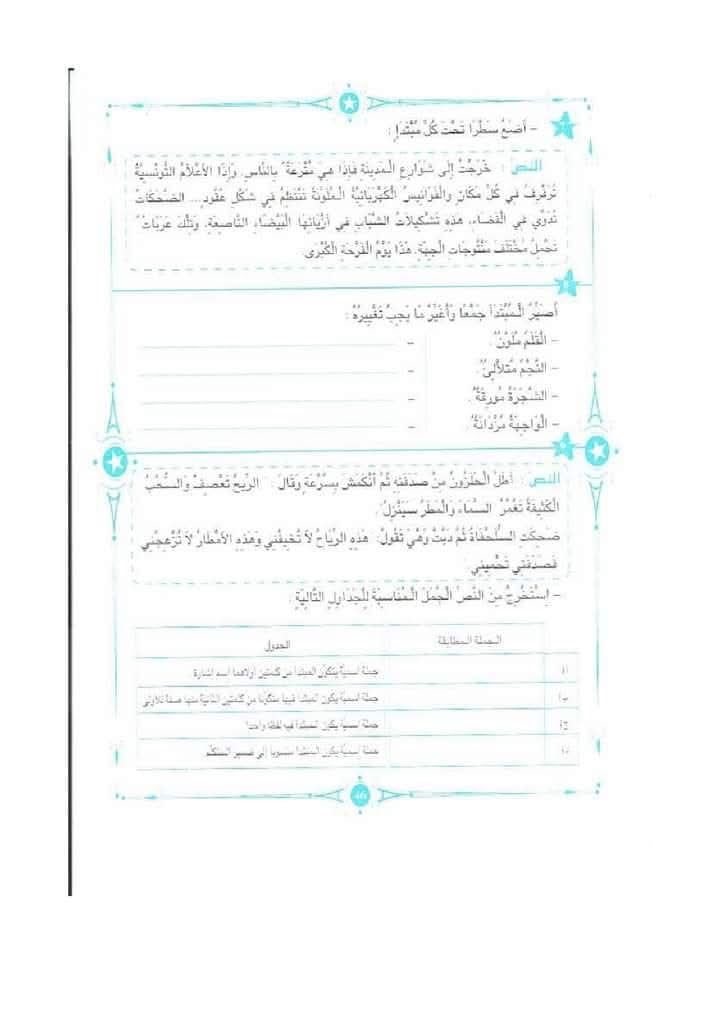 7
– أَضَعُ سَطْرًا تَحْتَ كُلِّ مُبْتَدَإٍ :
النص : خَرَجْتُ إِلَى شَوَارِعِ الْمَدِينَةِ فَإِذَا هِيَ مُتْرَعَةٌ بِالنَّاسِ. وَإِذَا الأَعْلَامُ التُّونِسِيَّةُ
تُرَفْرِفُ فِي كُلِّ مَكَانٍ وَالْفَوَانِيسُ الْكَهْرَبَائِيَّةُ الْمُلَوَّنَةُ تَنْتَظِمُ فِي شَكْلِ عُقُودٍ... الضَّحَكَاتُ
تُدَوِّي فِي الْفَضَاءِ، هَذِهِ تَشْكِيلَاتُ الشَّبَابِ فِي أَزْيَائِهَا الْبَيْضَاءِ النَّاصِعَةِ، وَتِلْكَ عَرَبَاتٌ
تَحْمِلُ مُخْتَلَفَ مَنْتُوجَاتِ الْجِهَةِ. هَذَا يَوْمُ الْفَرْحَةِ الْكُبْرَى.
8
أُصَيِّرُ الْمُبْتَدَأَ جَمْعًا وَأُغَيِّرُ مَا يَجِبُ تَغْيِيرُهُ :
– الْقَلَمُ مُلَوَّنٌ. –
– النَّجْمُ مُتَلَأْلِئٌ. –
– الشَّجَرَةُ مُورِقَةٌ. –
– الْوَاجِهَةُ مُزْدَانَةٌ. –
النص : أَطَلَّ الْحَلَزُونُ مِنْ صَدَفَتِهِ ثُمَّ انْكَمَشَ بِسُرْعَةٍ وَقَالَ : الرِّيحُ تَعْصِفُ وَالسُّحُبُ
الْكَثِيفَةُ تَغْمُرُ السَّمَاءَ وَالْمَطَرُ سَيَنْزِلُ.
ضَحِكَتِ السُّلَحْفَاةُ ثُمَّ دَبَّتْ وَهْيَ تَقُولُ: هَذِهِ الرِّيَاحُ لَا تُخِيفُنِي وَهَذِهِ الأَمْطَارُ لَا تُزْعِجُنِي
فَصَدَفَتِي تَحْمِينِي.
– اِسْتَخْرِجْ مِنَ النَّصِّ الْجُمَلَ الْمُنَاسِبَةَ لِلْجَدَاوِلِ التَّالِيَةِ :
الجملة المطابقة الجدول
أ) جملة اسميّة يتكوّن المبتدأ من كلمتين أولاهما اسم إشارة.
ب) جملة اسميّة يكون المبتدأ فيها متكوّنا من كلمتين الثّانية منها صفة للأولى
ج) جملة اسميّة يكون المبتدأ فيه لفظا واحدا
د) جملة اسميّة يكون المبتدأ منسوبا إلى ضمير المتكلّم
46